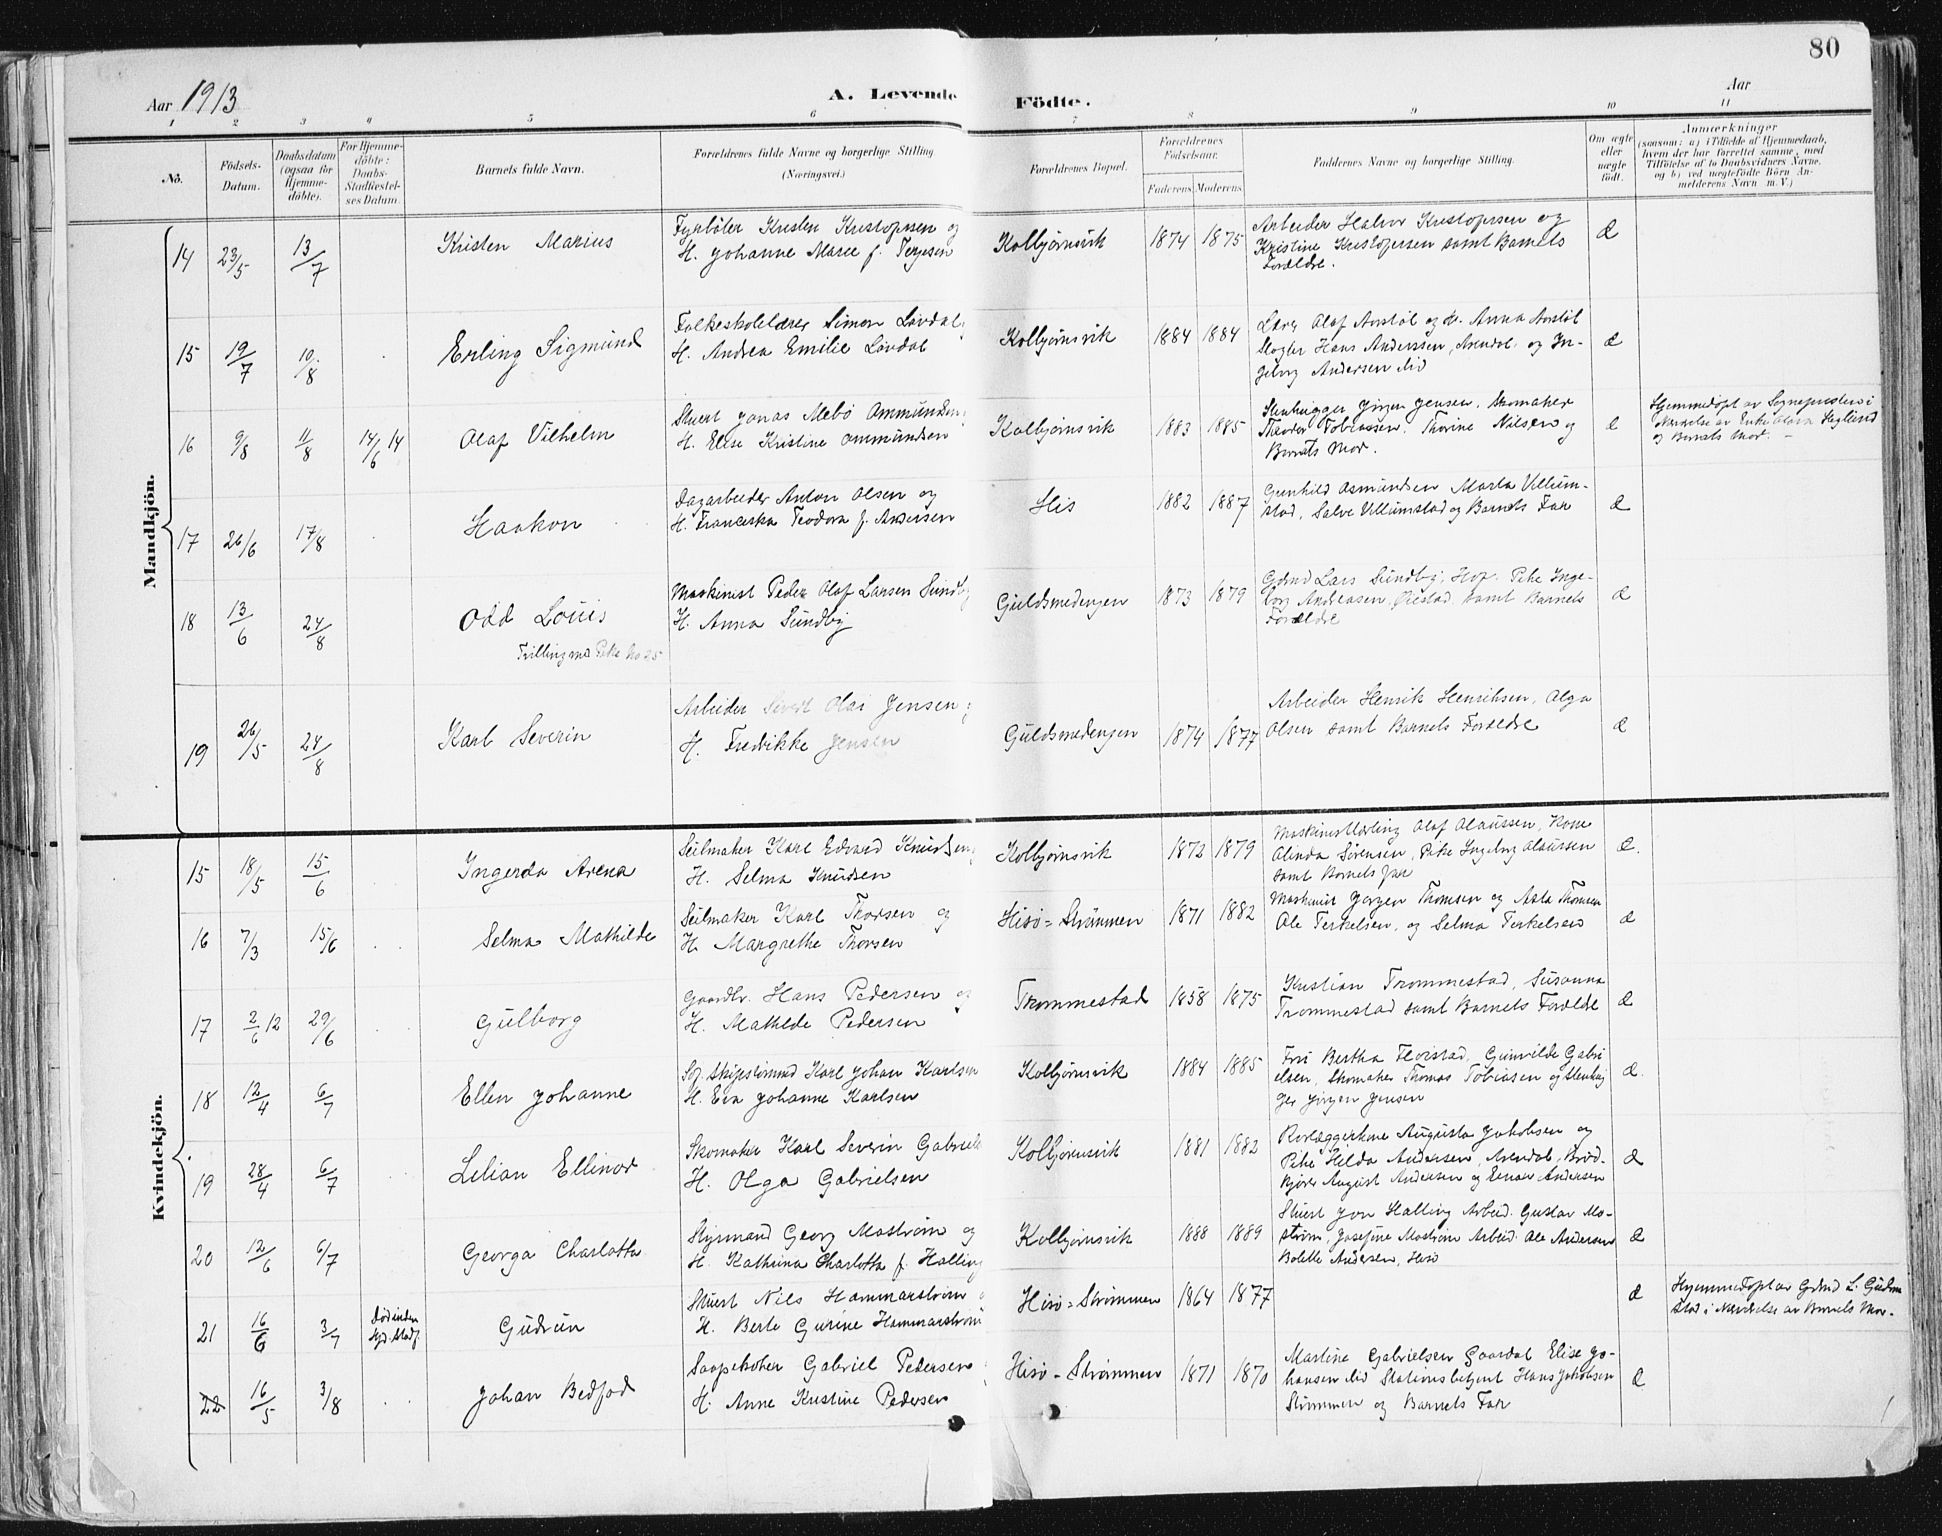 80
Aar 1913
A. Levende Födte.
Aar
1 2 3 4 5 6 7 8 9 10 11
No.
Födsels-Datum.
Daabsdatum (ogsaa for Hjemme-döbte).
For Hjemme-döbte: Daabs-Stadfæstel-ses Datum.
Barnets fulde Navn.
Forældrenes fulde Navne og borgerlige Stilling (Næringsvei.)
Forældrenes Bopæl.
Forældrenes Födselsaar.
Faderens. Moderens.
Faddernes Navne og borgerlige Stilling.
Om ægte eller uægte födt.
Anmærkninger
(saasom: a) i Tilfælde af Hjemmedaab, hvem der har forrettet samme, med Tilföielse af to Daabsvidners Navne. og b) ved uægtefödte Börn An-melderens Navn m. V.)
Mandkjön.
14 23/5 13/7 Kristen Marius
Fyrbøter Kristen Kristopersen og
H. Johanne Marie f. Terjesen
Kolbjørnsvik 1874 1875
Arbeider Halvor Kristopersen og
Kristine Kristopersen samt Barnets
Forældre.
Æ
15 19/7 10/8 Erling Sigmund
Folkeskolelærer Simon Løvdal
H. Andrea Emilie Løvdal
Kolbjørnsvik 1884 1884
Lærer Olaf Aorstøl og H. Anna Aorstøl
Slagter Hans Anderssen, Arendal og In-
geborg Andersen ibid
Æ
16 9/8 11/8 14/6 14 Olaf Vilhelm
Stuert Jonas Mebø Ommundsen
H. Elise Kristine Ommundsen
Kolbjørnsvik 1883 1885
Stenhugger Jørgen Jensen, Skomaker
Theodor Tobiassen. Thorine Nilsen og
Barnets Mor.
Æ
Hjemmedøpt av Sognepresten i
Nærvelse av Enke
og Barnets Mor.
17 26/6 17/8 Haakon
Dagarbeider Anton Olsen og
H. Franceska Teodora f. Andersen
His 1882 1887
Gunhild Osmundsen Marta Vellum-
stad, Salve Vellumstad og Barnets Far
Æ
18 13/6 24/8 Odd Louis
Trilling med Pike No 25
Maskinist Peder Olaf Larsen Sundby
H. Anna Sundby
Guldsmedengen 1873 1879
Gdmd Lars Sundby, Hop. Pike Inge-
borg Andreasen, Øiestad samt Barnets
Forældre
Æ
19 26/5 24/8 Karl Severin
Arbeider Sivert Olai Jensen
H. Fredrikke Jensen
Guldsmedengen 1874 1877
Arbeider Henrik Henriksen, Olga
Olsen samt Barnets Forældre
Æ
Kvindekjön.
15 18/5 15/6 Ingerda Arena
Seilmaker Karl Edvard Knudsen
H. Selma Knudsen
Kolbjørnsvik 1872 1879
Maskinistlærling Olaf Olaussen, Kone
Olinda Sørensen, Pike Ingeborg Olaussen
samt Barnets Far
Æ.
16 7/3 15/6 Selma Mathilde
Seilmaker Karl Thorsen og
H. Margrethe Thorsen
Hisø-Strømmen 1871 1882
Maskinist Jørgen Thomsen og Asta Thomsen
Ole Terkelsen, og Selma Terkelsen
Æ
17 2/6 12 29/6 Gulborg
Gaardbr. Hans Pedersen og
H. Mathilde Pedersen
Trommestad 1858 1875
Kristian Trommestad, Susanna
Trommestad samt Barnets Forældre
Æ
18 12/4 6/7 Ellen Johanne
Karl Johan Karlsen
H. Eva Johanne Karlsen
Kolbjørnsvik 1884 1885
Fru Bertha Fløistad, Gunvilde Gabri-
elsen, Skomaker Thomas Tobiasen og Stenhug-
ger Jørgen Jensen
Æ.
19 28/4 6/7 Lilian Ellinor
Skomaker Karl Severin Gabriels
H. Olga Gabrielsen
Kolbjørnsvik 1881 1882
Rørlæggerkone Augusta Jakobsen og
Pike Hilda Andersen, Arendal, Brød-
kjører August Andersen og Einar Andersen
Æ
20 12/6 6/7 Georga Charlotta
Styrmand Georg Mostrøm og
H. Kathrina Charlotta f. Halling
Kolbjørnsvik 1888 1889
Stuert Jon Halling Arbeid. Gustav Mo-
strøm, Josefine Mostrøm Arbeid. Ole Andersen
Bolette Andersen, Hisø
Æ
21 16/6 3/7 Død inden Stadf. Gudrun
Stuert Nils Hammarstrøm
H. Berte Gurine Hammarstrøm
Hisø-Strømmen 1864 1877
Æ
Hjemmedøpt av Grdmd L. Gudm
stad i Nærvelse av Barnets Mor.
22 16/5 3/8 Johan Bedfod
Saapekoker Gabriel Pedersen
H. Anne Kristine Pedersen
Hisø-Strømmen 1871 1870
Martine Gabrielsen Gaardal Elise Jo-
hansen ibid Stationsbetjent Hans Jakobsen
Strømmen og Barnets Far
Æ